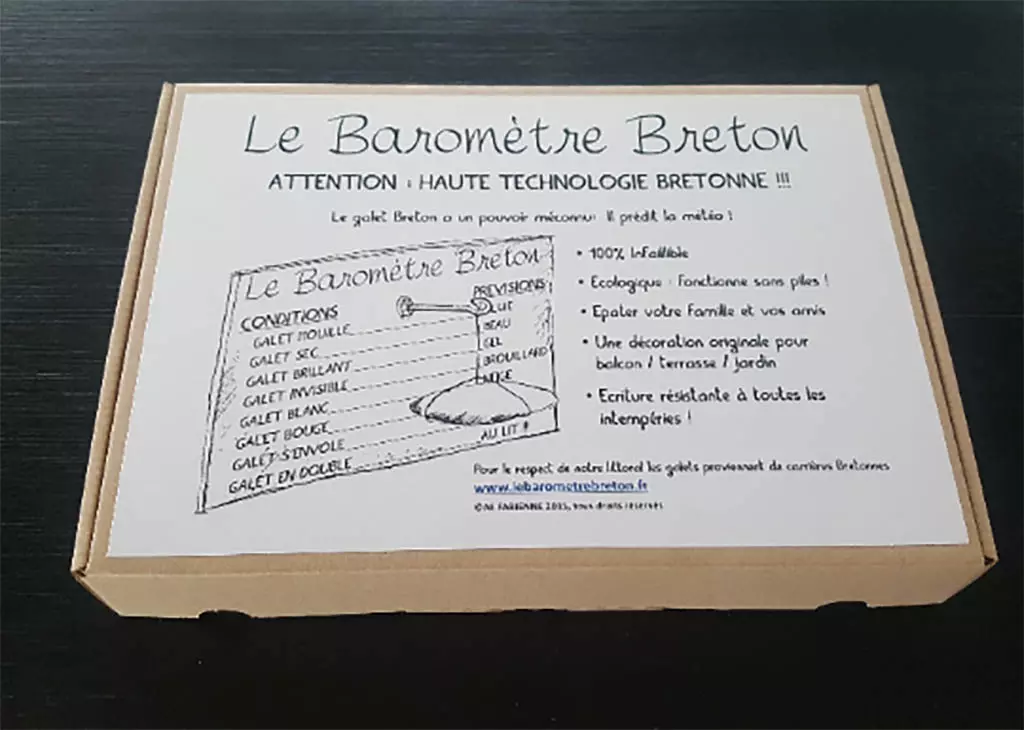 Le Baromètre Breton
ATTENTION : HAUTE TECHNOLOGIE BRETONNE !!!
Le galet Breton a un pouvoir méconnu: Il prédit la météo !
Le Baromètre Breton
CONDITIONS
GALET MOUILLE
GALET SEC
GALET BRILLANT
GALET INVISIBLE
GALET BLANC
GALET BOUGE
GALET S'ENVOLE
GALET EN DOUBLE
PREVISIONS
BEAU
GEL
BROUILLARD
NEIGE
AU LIT !
• 100% Infaillible
• Ecologique : Fonctionne sans piles !
• Epater votre famille et vos amis
• Une décoration originale pour
balcon / terrasse / jardin
• Ecriture résistante à toutes les
intempéries !
Pour le respect de notre littoral les galets proviennent de carrières Bretonnes
www.lebarometrebreton.fr
FABIENNE 2015, tous droits réservés